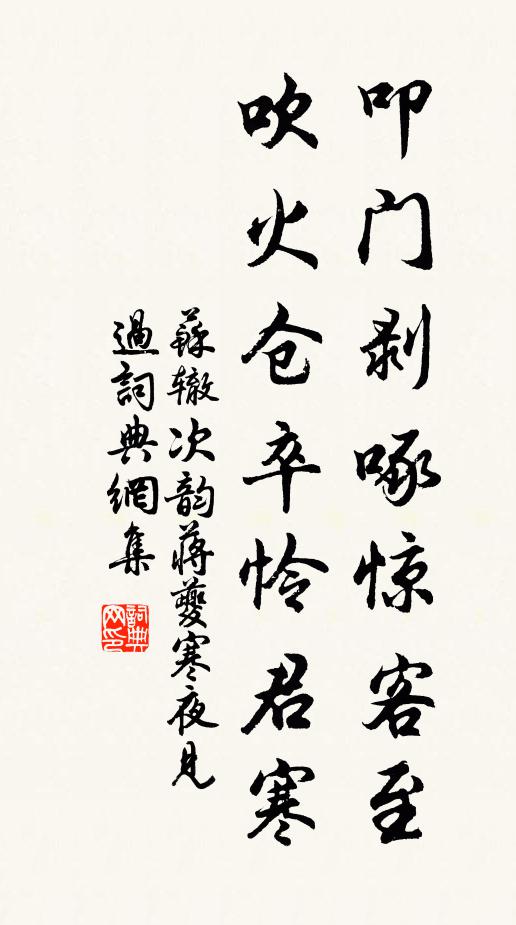 叩门剥啄惊客至
吹火仓卒怜君寒
蘇辙次韵蒋夔寒夜見
過詞典網集
詞典
网印